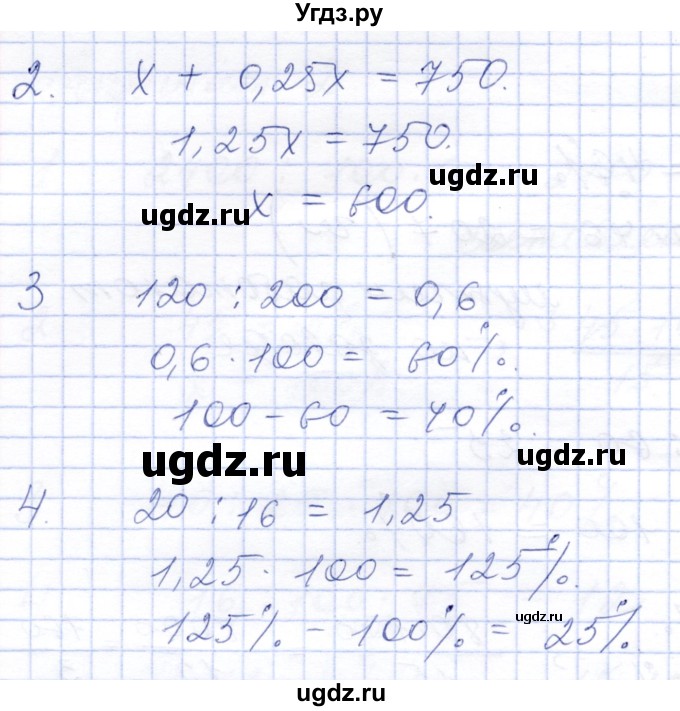 Угдз.ру
2. x + 0,25x = 750.
1,25x = 750.
ugdz.ru
x = 600.
ugdz.ru
3 120 : 200 = 0,6
0,6 · 100 = 60%.
100 - 60 = 40%.
ugdz.ru
ugdz.ru
4. 20 : 16 = 1,25
1,25 · 100 = 125%.
ugdz.ru
125% - 100% = 25%.
ugdz.ru